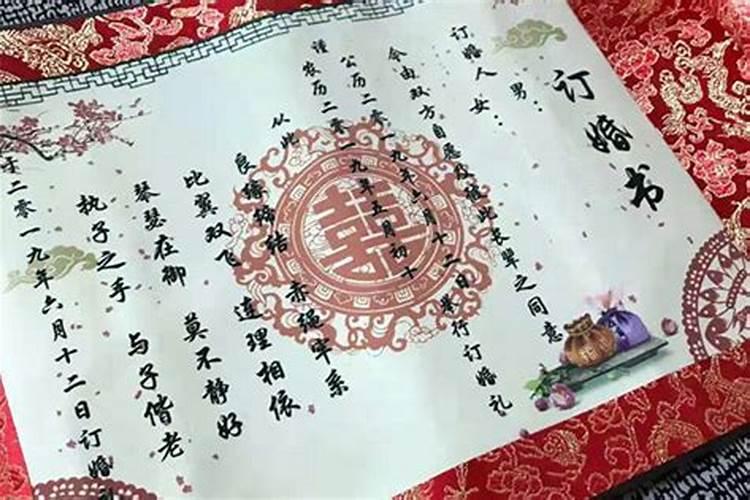 订婚书
男:
订婚人女:
今由双方自愿及彼此长辈之同意
谨
公历二零一九年六月十二日举行订婚礼
农历二零一九年五月初十
从此
良缘缔结 赤绳牢系
比翼双飞 连理相依
琴瑟在御 莫不静好
执子之手 与子偕老
于二零一九年六月十二日订婚